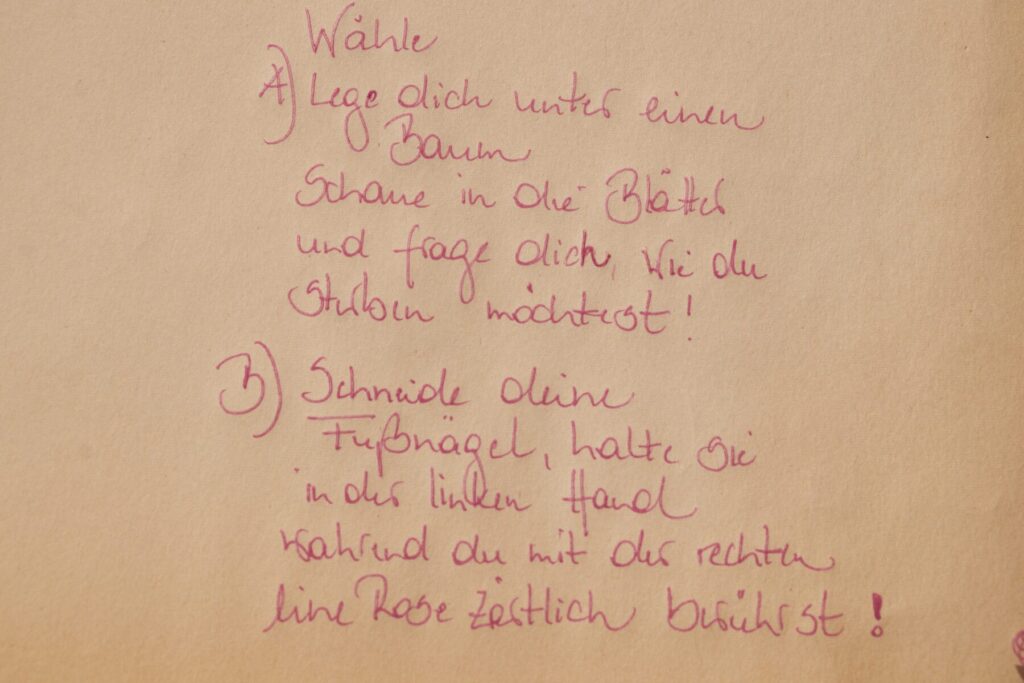 Wähle
A) Lege dich unter einen
Baum
Schaue in die Blätter
und frage dich, wie du
sterben möchtest!
B) Schneide deine
Fußnägel, halte sie
in der linken Hand
während du mit der rechten
eine Rose zärtlich berührst!